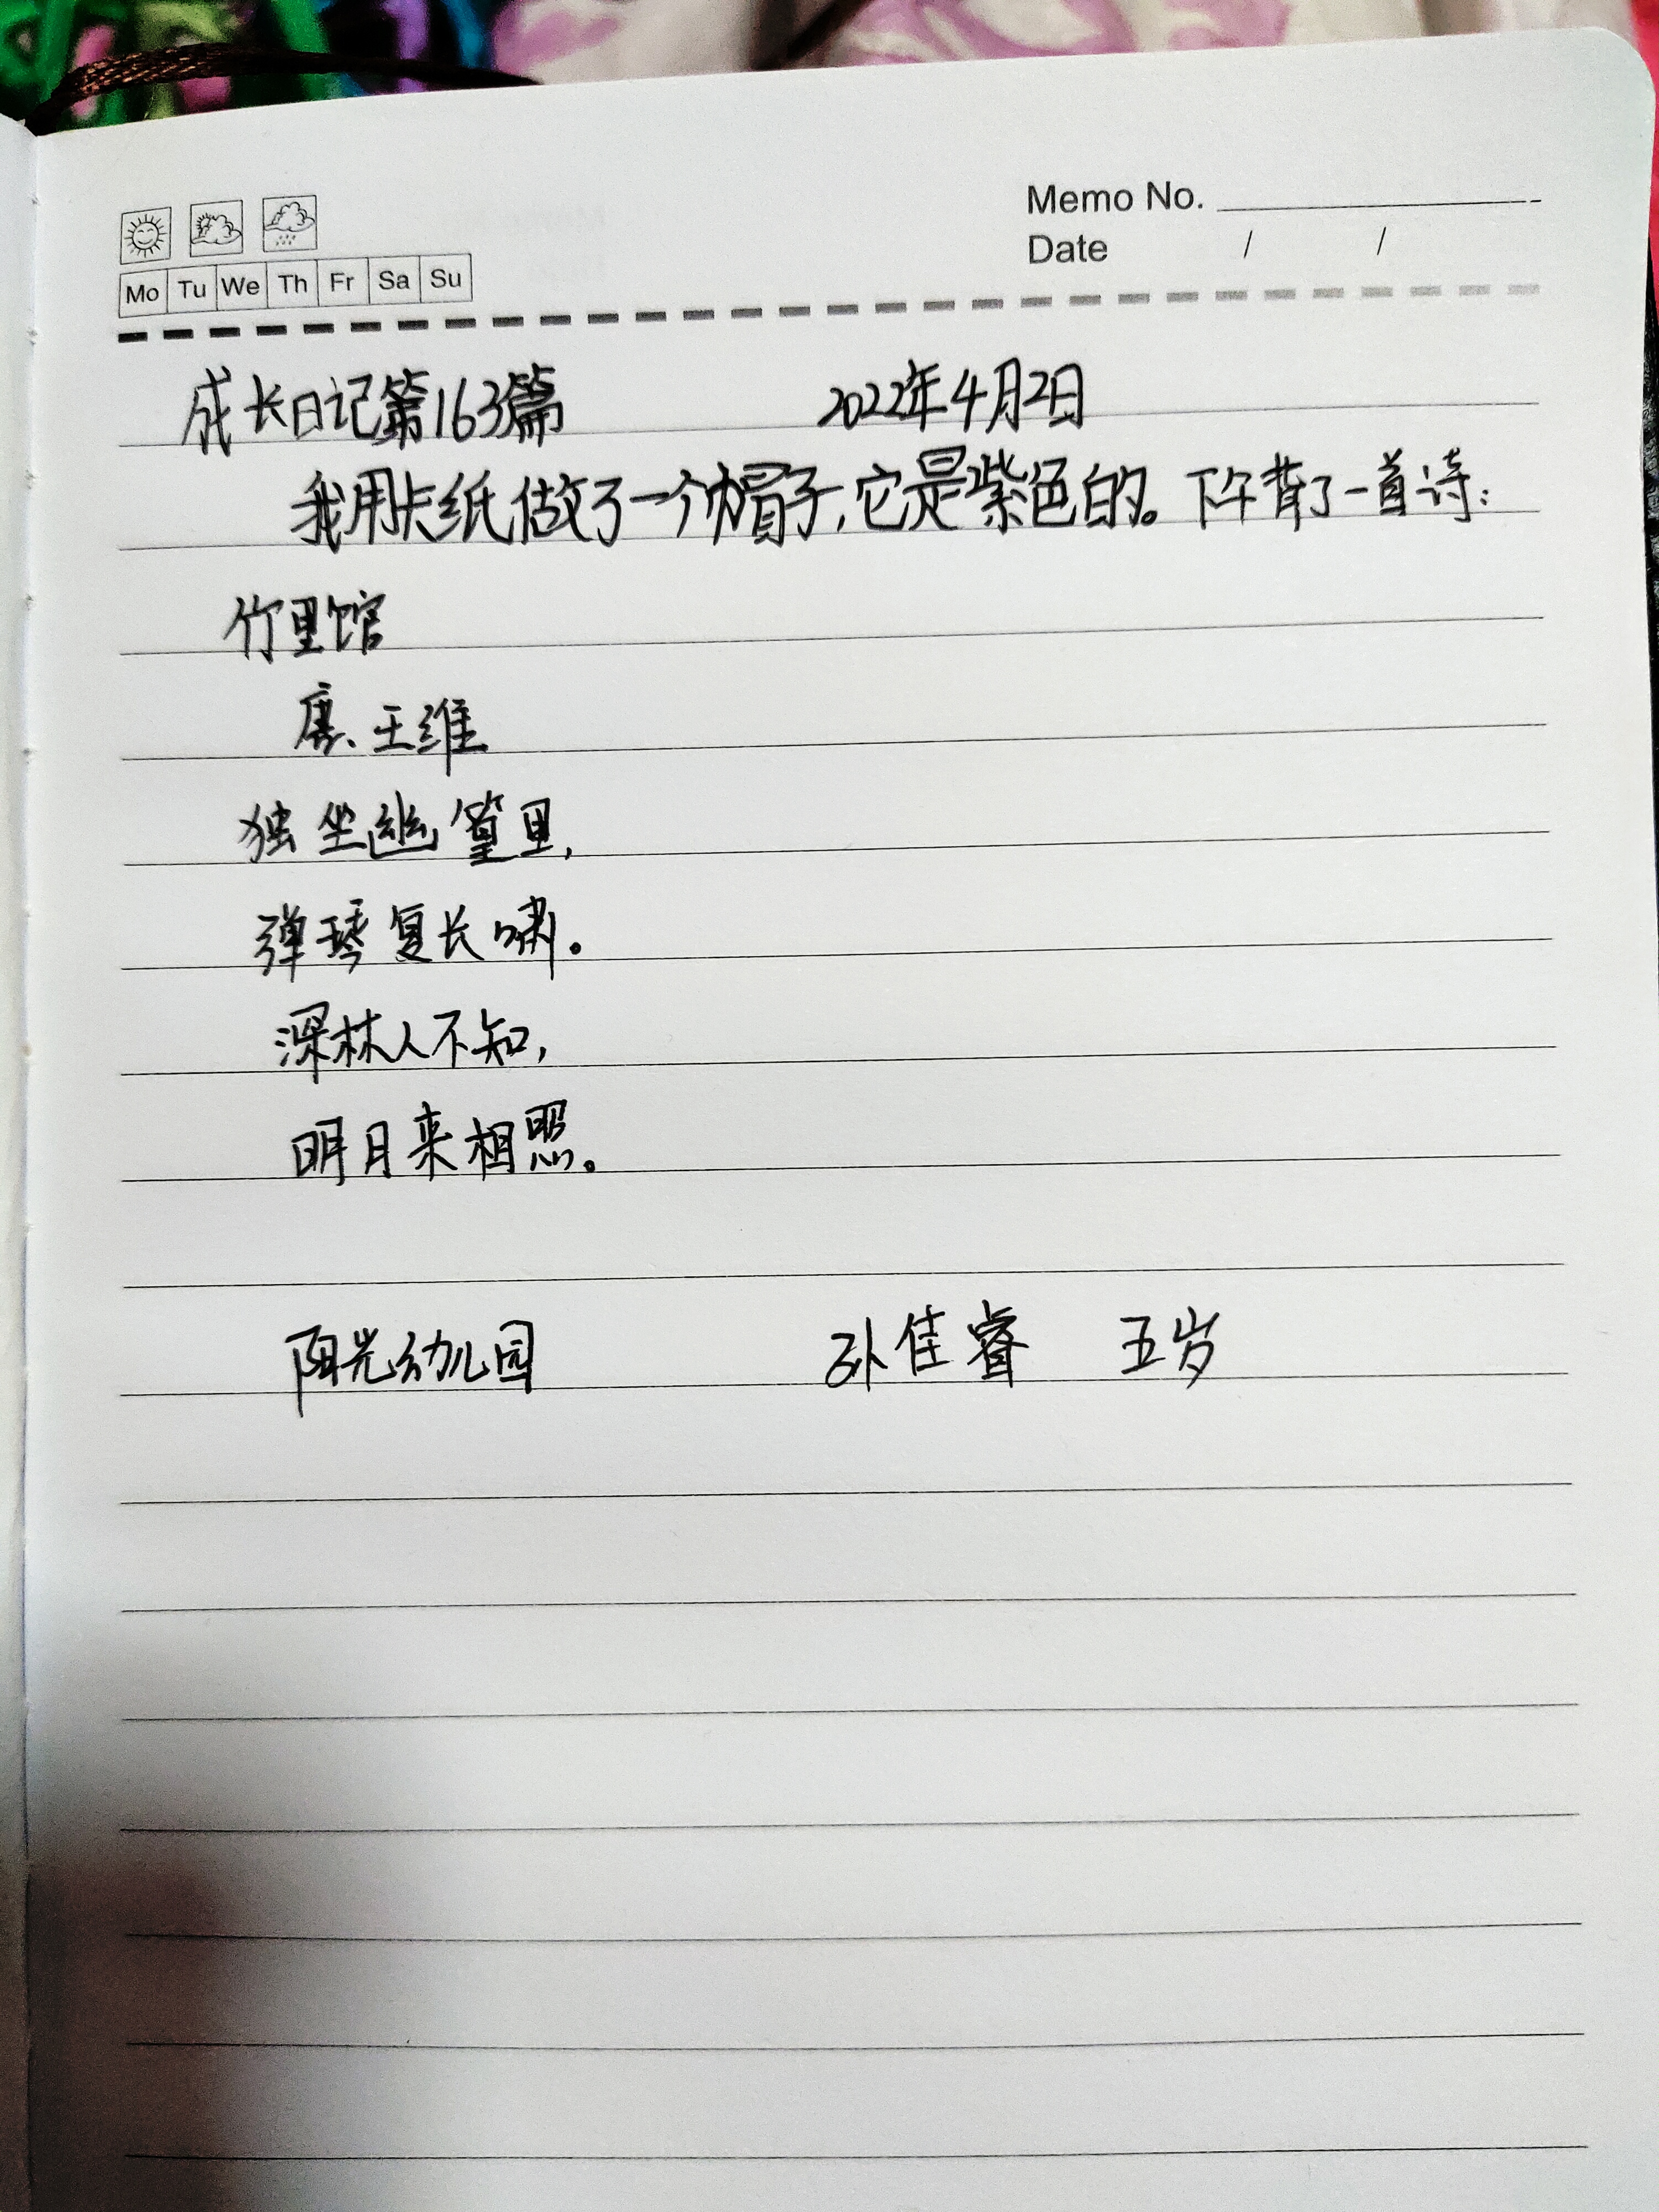 Memo No.
Date / /
Mo Tu We Th Fr Sa Su
成长日记第163篇 2022年4月2日
我用卡纸做了一个帽子,它是紫色的。下午背了一首诗:
竹里馆
唐、王维
独坐幽篁里,
弹琴复长啸。
深林人不知,
明月来相照。
阳光幼儿园 孙佳睿 五岁